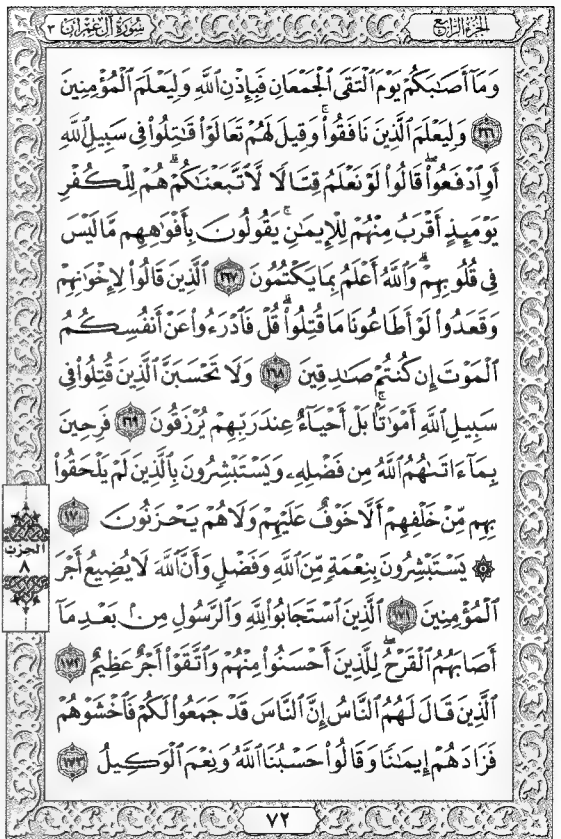 الجزء الرابع
سورة آل عمران ٣
وَمَآ أَصَٰبَكُمْ يَوْمَ ٱلْتَقَى ٱلْجَمْعَانِ فَبِإِذْنِ ٱللَّهِ وَلِيَعْلَمَ ٱلْمُؤْمِنِينَ
١٦٦ وَلِيَعْلَمَ ٱلَّذِينَ نَافَقُوا۟ۚ وَقِيلَ لَهُمْ تَعَالَوْا۟ قَٰتِلُوا۟ فِى سَبِيلِ ٱللَّهِ
أَوِ ٱدْفَعُوا۟ۖ قَالُوا۟ لَوْ نَعْلَمُ قِتَالًا لَّٱتَّبَعْنَٰكُمْۗ هُمْ لِلْكُفْرِ
يَوْمَئِذٍ أَقْرَبُ مِنْهُمْ لِلْإِيمَٰنِۚ يَقُولُونَ بِأَفْوَٰهِهِم مَّا لَيْسَ
فِى قُلُوبِهِمْۗ وَٱللَّهُ أَعْلَمُ بِمَا يَكْتُمُونَ ١٦٧ ٱلَّذِينَ قَالُوا۟ لِإِخْوَٰنِهِمْ
وَقَعَدُوا۟ لَوْ أَطَاعُونَا مَا قُتِلُوا۟ۗ قُلْ فَٱدْرَءُوا۟ عَنْ أَنفُسِكُمُ
ٱلْمَوْتَ إِن كُنتُمْ صَٰدِقِينَ ١٦٨ وَلَا تَحْسَبَنَّ ٱلَّذِينَ قُتِلُوا۟ فِى
سَبِيلِ ٱللَّهِ أَمْوَٰتًۢاۚ بَلْ أَحْيَآءٌ عِندَ رَبِّهِمْ يُرْزَقُونَ ١٦٩ فَرِحِينَ
بِمَآ ءَاتَىٰهُمُ ٱللَّهُ مِن فَضْلِهِۦ وَيَسْتَبْشِرُونَ بِٱلَّذِينَ لَمْ يَلْحَقُوا۟
بِهِم مِّنْ خَلْفِهِمْ أَلَّا خَوْفٌ عَلَيْهِمْ وَلَا هُمْ يَحْزَنُونَ ١٧٠
۞ يَسْتَبْشِرُونَ بِنِعْمَةٍ مِّنَ ٱللَّهِ وَفَضْلٍ وَأَنَّ ٱللَّهَ لَا يُضِيعُ أَجْرَ
ٱلْمُؤْمِنِينَ ١٧١ ٱلَّذِينَ ٱسْتَجَابُوا۟ لِلَّهِ وَٱلرَّسُولِ مِنۢ بَعْدِ مَآ
أَصَابَهُمُ ٱلْقَرْحُۚ لِلَّذِينَ أَحْسَنُوا۟ مِنْهُمْ وَٱتَّقَوْا۟ أَجْرٌ عَظِيمٌ ١٧٢
ٱلَّذِينَ قَالَ لَهُمُ ٱلنَّاسُ إِنَّ ٱلنَّاسَ قَدْ جَمَعُوا۟ لَكُمْ فَٱخْشَوْهُمْ
فَزَادَهُمْ إِيمَٰنًا وَقَالُوا۟ حَسْبُنَا ٱللَّهُ وَنِعْمَ ٱلْوَكِيلُ ١٧٣
الحزب
٨
٧٢